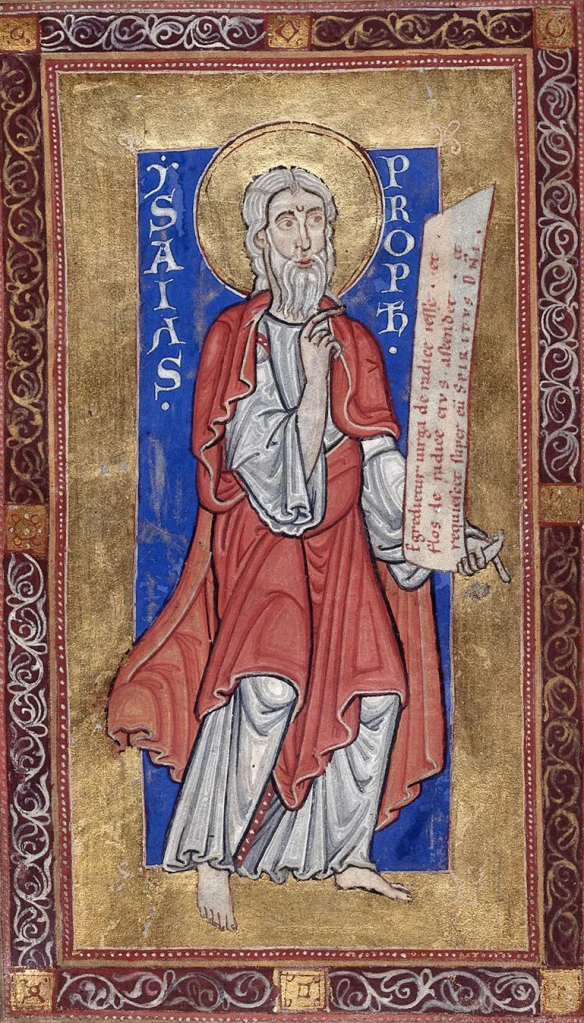 ẎSAIAS.
PROPħ.
Egredietur uirga de radice iesse · et
flos de radice eius ascendet · et
requiescet super eū SPIRITVS DÑI.